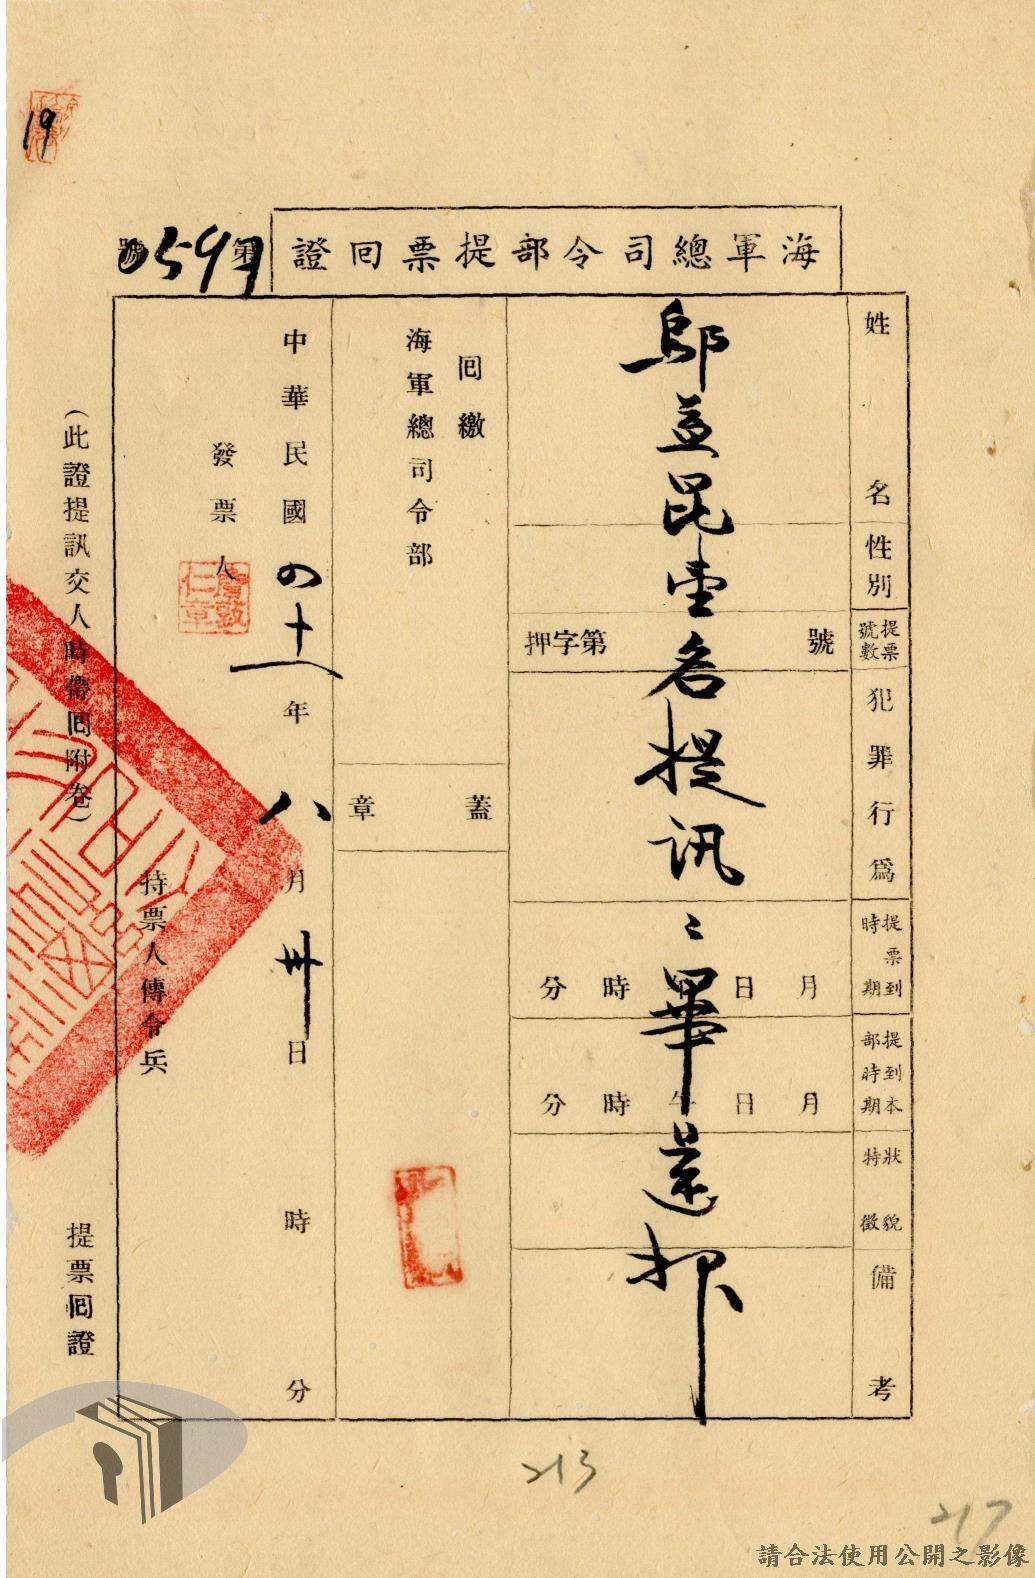 19
海軍總司令部提票回證
第0597號
姓名
性別
提票號數
犯罪行為
提票到時期
提到本部時期
狀貌特徵
備考
押字第 號
月 日 時 分
月 日 午 時 分
邬並昆壹名提訊〻畢還押
回繳
海軍總司令部
蓋章
中華民國四十一年八月卅日 時 分
發票人
詹敦仁章
持票人傳令兵
(此證提訊交人時帶回附卷)
提票回證
213
217
請合法使用公開之影像